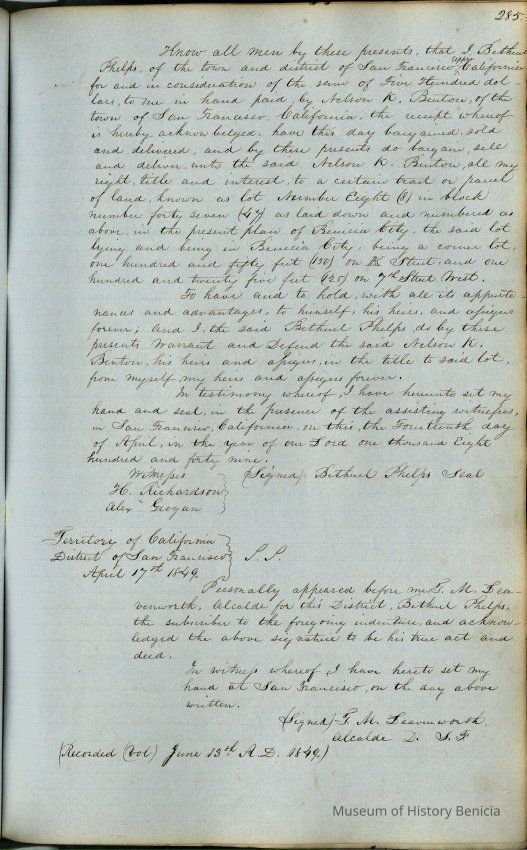 285
Know all men by these presents, that I Bethuel
Phelps, of the town and district of San Francisco, upper California
for and in consideration of the sum of Five Hundred dol
lars, to me in hand paid, by Nelson K. Benton, of the
town of San Francisco, California, the receipt whereof
is hereby acknowledged, have this day bargained, sold
and delivered, and by these presents do bargain, sell
and deliver, unto the said Nelson K. Benton, all my
right, title and interest, to a certain tract or parcel
of land, known as lot Number Eight (8) in block
number forty seven (47) as laid down and numbered as
above, in the present plan of Benicia City, the said lot
lying and being in Benicia City, being a corner lot,
one hundred and fifty feet (150) on Street, and one
hundred and twenty five feet (125) on 7th Street West.
To have and to hold, with all its appurte
nances and advantages, to himself, his heirs, and assigns
forever; and I, the said Bethuel Phelps, do by these
presents Warrant and Defend the said Nelson K.
Benton, his heirs and assigns, in the title to said lot,
from myself, my heirs and assigns forever.
In testimony whereof, I have hereunto set my
hand and seal, in the presence of the assisting witnesses,
in San Francisco, California, on this, the Fourteenth day
of April, in the year of our Lord one thousand Eight
hundred and forty nine.
Witnesses (Signed) Bethuel Phelps Seal
H. Richardson
Alexr Grogan
Territory of California
District of San Francisco S.S.
April 17th 1849
Personally appeared before me, T. M. Lea-
venworth, Alcalde for this District, Bethuel Phelps,
the subscriber to the foregoing indenture, and acknow-
ledged the above signature to be his true act and
deed.
In witness whereof, I have hereto set my
hand at San Francisco, on the day above
written.
(Signed) T. M. Leavenworth.
Alcalde D. S. F.
(Recorded June 13th A.D. 1849)
Museum of History Benicia